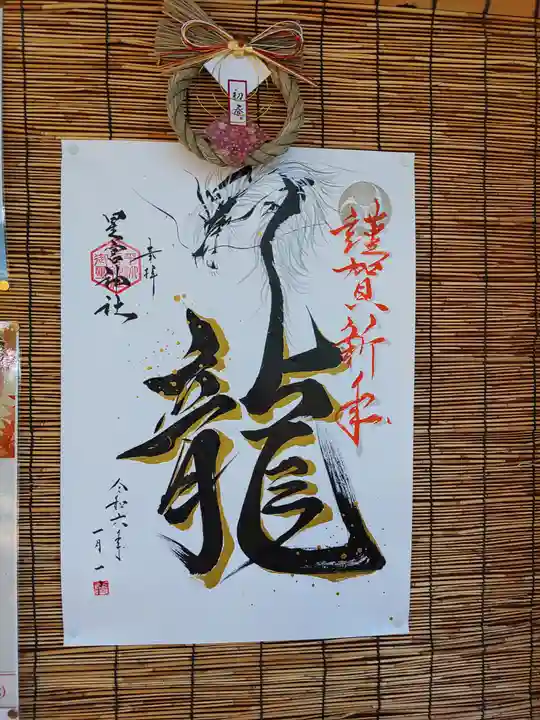 初詣
謹賀新年
龍
奉拝
星宮神社
令和六年
一月一